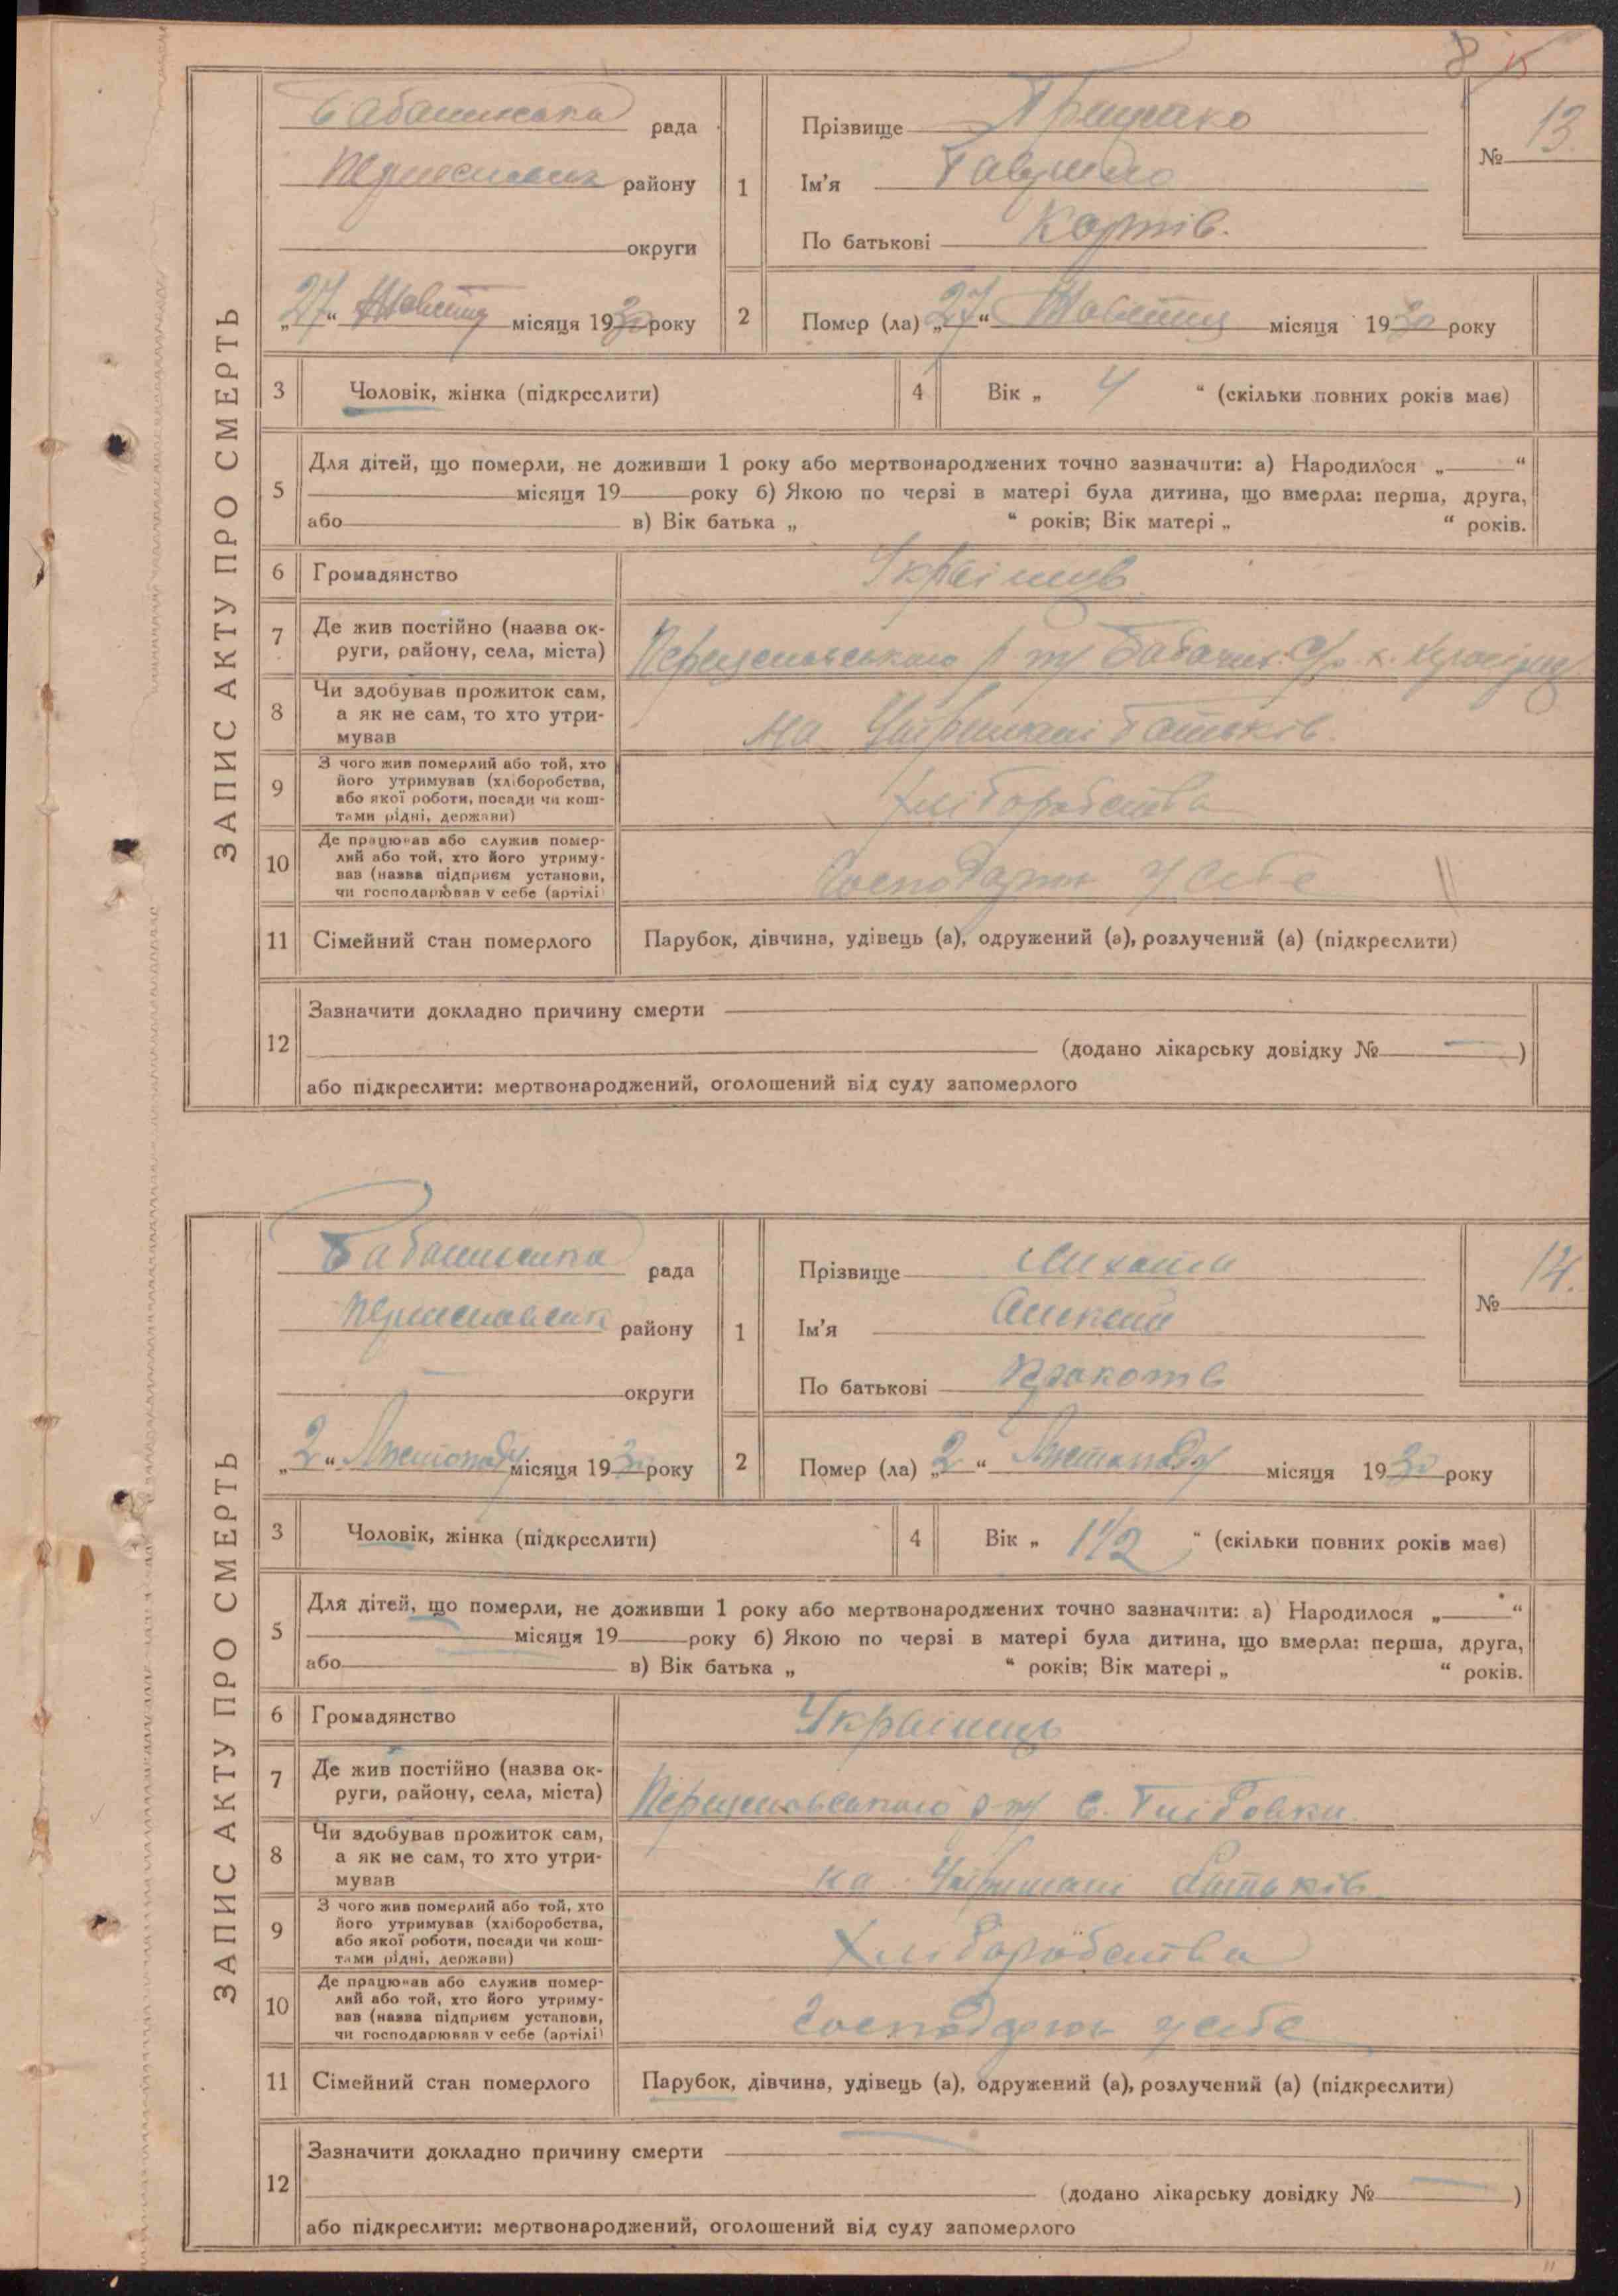 8
ЗАПИС АКТУ ПРО СМЕРТЬ
рада
району
округи
„27“ місяця 1930 року
1
Прізвище
Ім'я Гаврило
По батькові
№ 13
2
Помер (ла) „27“ місяця 1930 року
3 Чоловік, жінка (підкреслити)
4 Вік „ 4 “ (скільки повних років має)
5 Для дітей, що померли, не доживши 1 року або мертвонароджених точно зазначити: а) Народилося „ “
місяця 19 року б) Якою по черзі в матері була дитина, що вмерла: перша, друга,
або в) Вік батька „ “ років; Вік матері „ “ років.
6 Громадянство
7 Де жив постійно (назва ок-
руги, району, села, міста)
8 Чи здобував прожиток сам,
а як не сам, то хто утри-
мував
на батьків
9 З чого жив померлий або той, хто
його утримував (хліборобства,
або якої роботи, посади чи кош-
тами рідні, держави)
хліборобства
10 Де працював або служив помер-
лий або той, хто його утриму-
вав (назва підприєм установи,
чи господарював у себе (артілі)
у себе
11 Сімейний стан померлого
Парубок, дівчина, удівець (а), одружений (а), розлучений (а) (підкреслити)
12 Зазначити докладно причину смерти
(додано лікарську довідку № )
або підкреслити: мертвонароджений, оголошений від суду запомерлого
ЗАПИС АКТУ ПРО СМЕРТЬ
рада
району
округи
„2“ Листопаду місяця 1930 року
1
Прізвище
Ім'я
По батькові
№ 14.
2
Помер (ла) „2“ Листопаду місяця 1930 року
3 Чоловік, жінка (підкреслити)
4 Вік „ 1 1/2 “ (скільки повних років має)
5 Для дітей, що померли, не доживши 1 року або мертвонароджених точно зазначити: а) Народилося „ “
місяця 19 року б) Якою по черзі в матері була дитина, що вмерла: перша, друга,
або в) Вік батька „ “ років; Вік матері „ “ років.
6 Громадянство
Українець
7 Де жив постійно (назва ок-
руги, району, села, міста)
с. Глібовки
8 Чи здобував прожиток сам,
а як не сам, то хто утри-
мував
на батьків
9 З чого жив померлий або той, хто
його утримував (хліборобства,
або якої роботи, посади чи кош-
тами рідні, держави)
Хліборобства
10 Де працював або служив помер-
лий або той, хто його утриму-
вав (назва підприєм установи,
чи господарював у себе (артілі)
у себе
11 Сімейний стан померлого
Парубок, дівчина, удівець (а), одружений (а), розлучений (а) (підкреслити)
12 Зазначити докладно причину смерти
(додано лікарську довідку № )
або підкреслити: мертвонароджений, оголошений від суду запомерлого